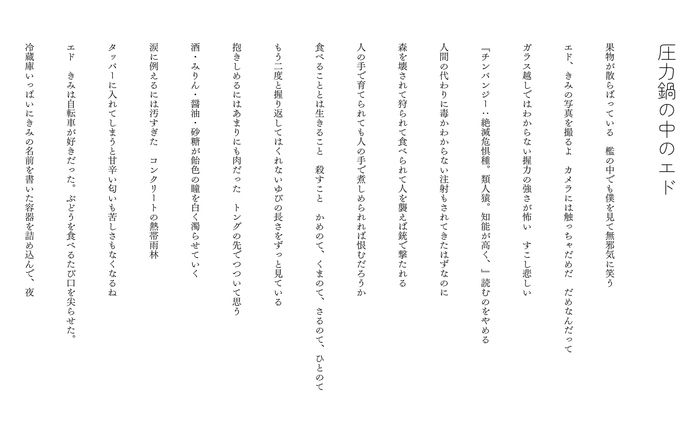 圧力鍋の中のエド
果物が散らばっている　檻の中でも僕を見て無邪気に笑う
エド、きみの写真を撮るよ　カメラには触っちゃだめだ　だめなんだって
ガラス越しではわからない握力の強さが怖い　すこし悲しい
『チンパンジー：絶滅危惧種。類人猿。知能が高く、』読むのをやめる
人間の代わりに毒かわからない注射もされてきたはずなのに
森を壊されて狩られて食べられて人を襲えば銃で撃たれる
人の手で育てられても人の手で煮しめられれば恨むだろうか
食べることとは生きること　殺すこと　かめのて、くまのて、さるのて、ひとのて
もう二度と握り返してはくれないゆびの長さをずっと見ている
酒・みりん・醤油・砂糖が飴色の瞳を白く濁らせていく
抱きしめるにはあまりにも肉だった　トングの先でつついて思う
涙に例えるには汚すぎた　コンクリートの熱帯雨林
タッパーに入れてしまうと甘辛い匂いも苦しさもなくなるね
エド　きみは自転車が好きだった。ぶどうを食べるたび口を尖らせた。
冷蔵庫いっぱいにきみの名前を書いた容器を詰め込んで、夜